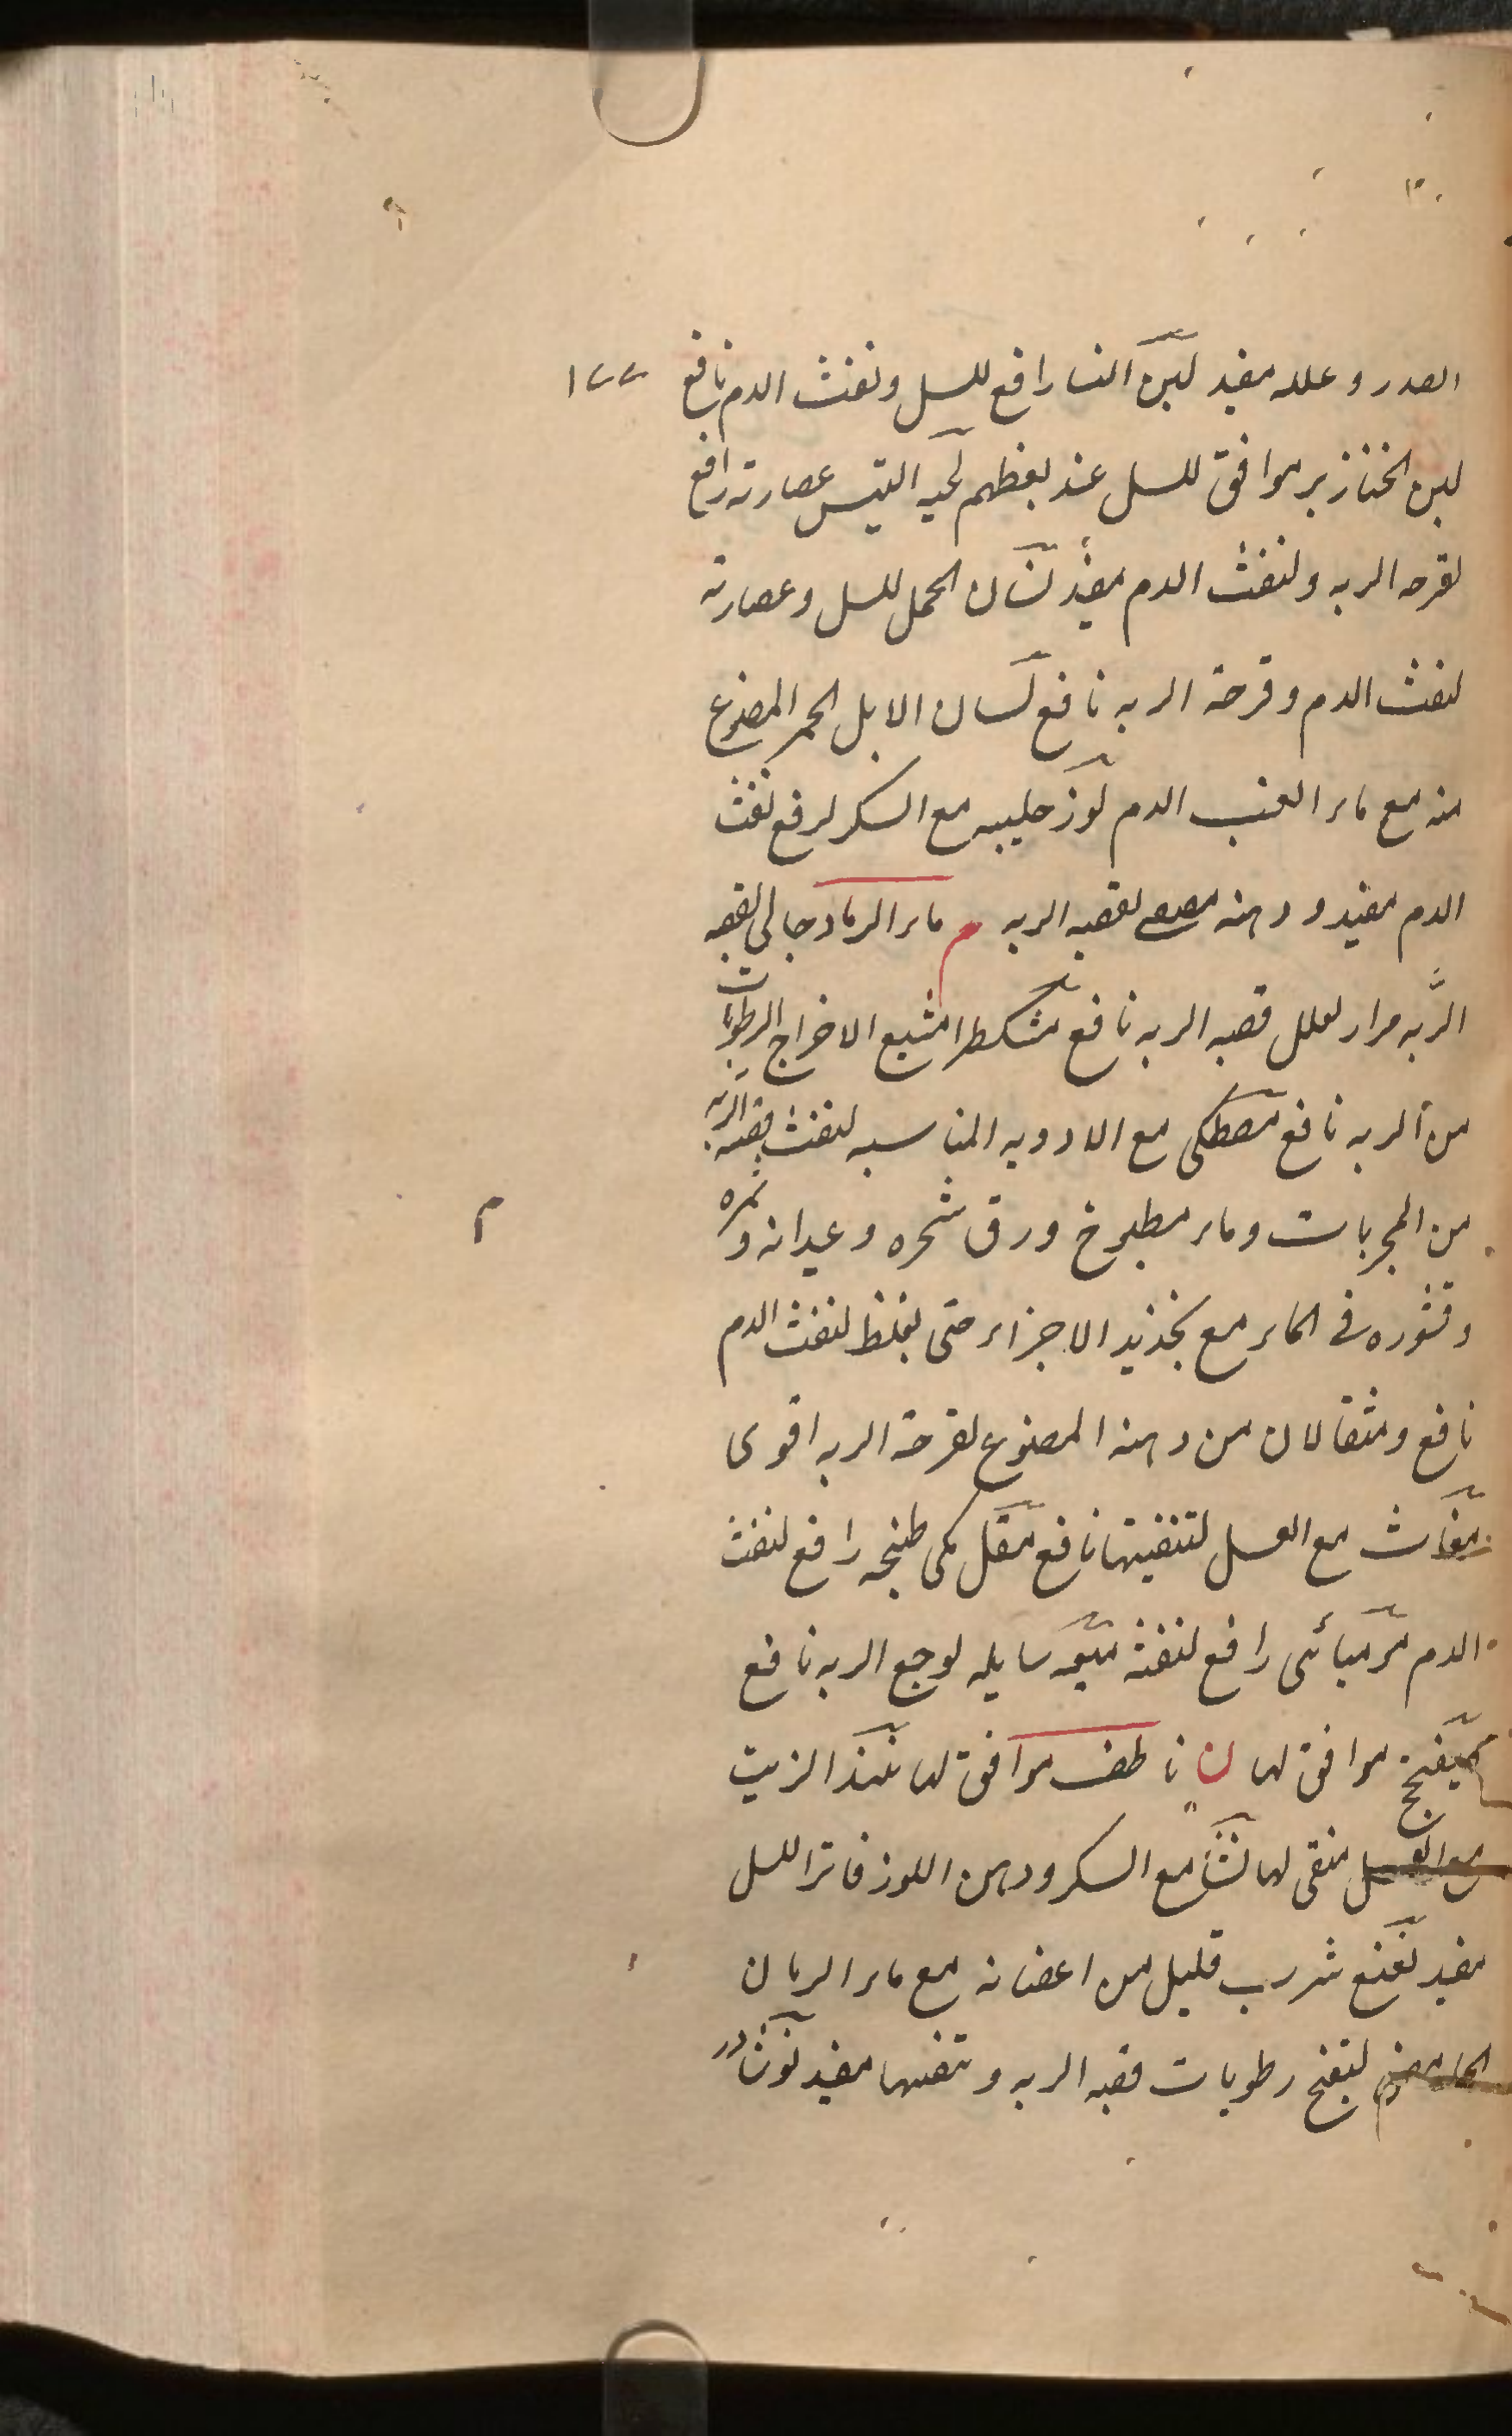 الصدر وعلله مفيد لبن النسا رافع للسل ونفث الدم نافع
١٧٧
لبن الخنازير موافق للسل عند بعضهم لحيه التيس عصارته رافع
لقرحه الريه ولنفث الدم مفيد لسان الحمل للسل وعصارته
لنفث الدم وقرحة الريه نافع لسان الابل الحمر المصنوع
منه مع ماء العنب الدم لوز حليبه مع السكر لرفع نفث
الدم مفيد ودهنه لقصبه الريه م ماء الرماد جالى لقصبه
الريه مرار لعلل قصبه الريه نافع مشكطرا مشيع الاخراج الرطوبات
من الريه نافع مصطكى مع الادويه المناسبه لنفث قصبه الريه
من المجربات وماء مطبوخ ورق شجره وعيدانه وثمره
م
وقشوره فى الماء مع الاجزاء حتى يغلظ لنفث الدم
نافع ومثقالان من دهنه المصنوع لقرحة الريه اقوى
مغاث مع العسل لتنقيتها نافع مقل مكى طبخه رافع لنفث
الدم رافع لنفثه ميعه سايله لوجع الريه نافع
ميفختج موافق لها ن ناطف موافق لها الزيت
مع العسل منقى لها نشا مع السكر ودهن اللوز فاترا للسل
مفيد نعنع شرب قليل من اغصانه مع ماء الرمان
الحامض لتفتح رطوبات قصبه الريه مفيد نوشادر